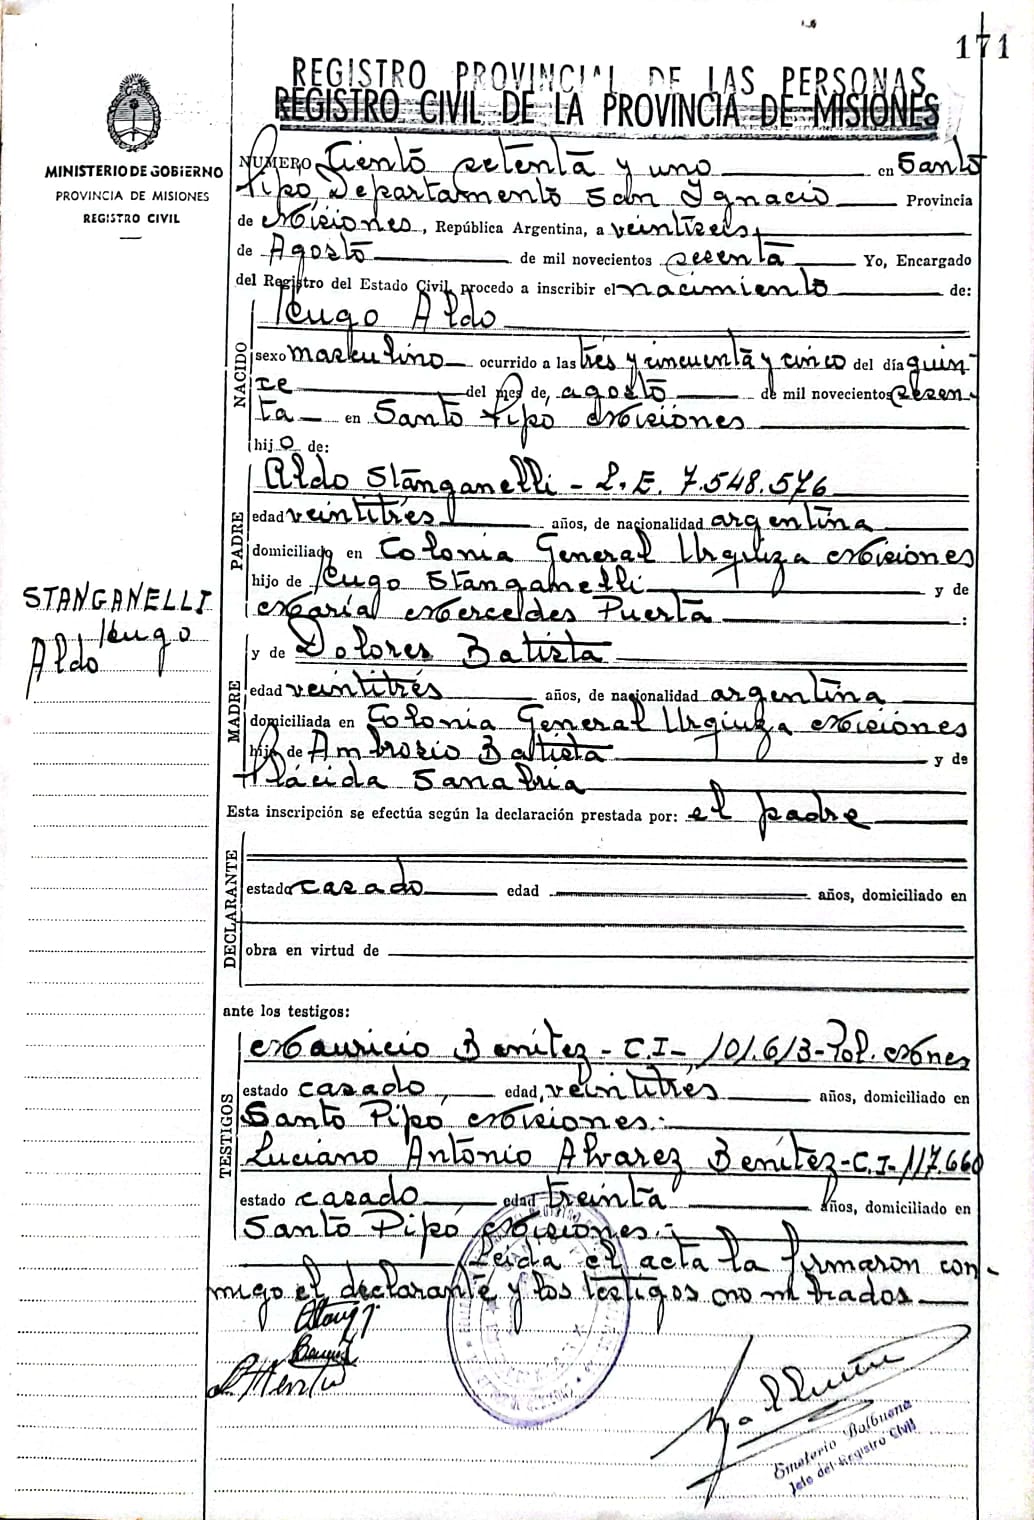 171
REGISTRO PROVINCIAL DE LAS PERSONAS
REGISTRO CIVIL DE LA PROVINCIA DE MISIONES
MINISTERIO DE GOBIERNO
PROVINCIA DE MISIONES
REGISTRO CIVIL
NUMERO Ciento setenta y uno en Santo
Pipo, Departamento San Ignacio Provincia
de Misiones, República Argentina, a veintiseis
de Agosto de mil novecientos sesenta Yo, Encargado
del Registro del Estado Civil, procedo a inscribir el nacimiento de:
NACIDO
Hugo Aldo
sexo masculino ocurrido a las tres y cincuenta y cinco del día quin-
ce del mes de, agosto de mil novecientos sesen-
ta en Santo Pipo Misiones
hijo de:
PADRE
Aldo Stanganelli - L. E. 7.548.576
edad veintitrés años, de nacionalidad argentina
domiciliado en Colonia General Urquiza Misiones
hijo de Hugo Stanganelli y de
María Mercedes Puerta :
STANGANELLI
Hugo
Aldo
MADRE
y de Dolores Batista
edad veintitrés años, de nacionalidad argentina
domiciliada en Colonia General Urquiza Misiones
hija de Ambrosio Batista y de
Plácida Sanabria
Esta inscripción se efectúa según la declaración prestada por: el padre
DECLARANTE
estado casado edad años, domiciliado en
obra en virtud de
ante los testigos:
TESTIGOS
Mauricio Benítez - C.I- 101.613-Pol. Mnes
estado casado, edad, veintitrés años, domiciliado en
Santo Pipó Misiones.-
Luciano Antonio Alvarez Benítez-C.I-117.660
estado casado edad treinta años, domiciliado en
Santo Pipó Misiones.-
Leida el acta la firmaron con-
migo el declarante y los testigos nombrados
Emeterio Balbuena
Jefe del Registro Civil